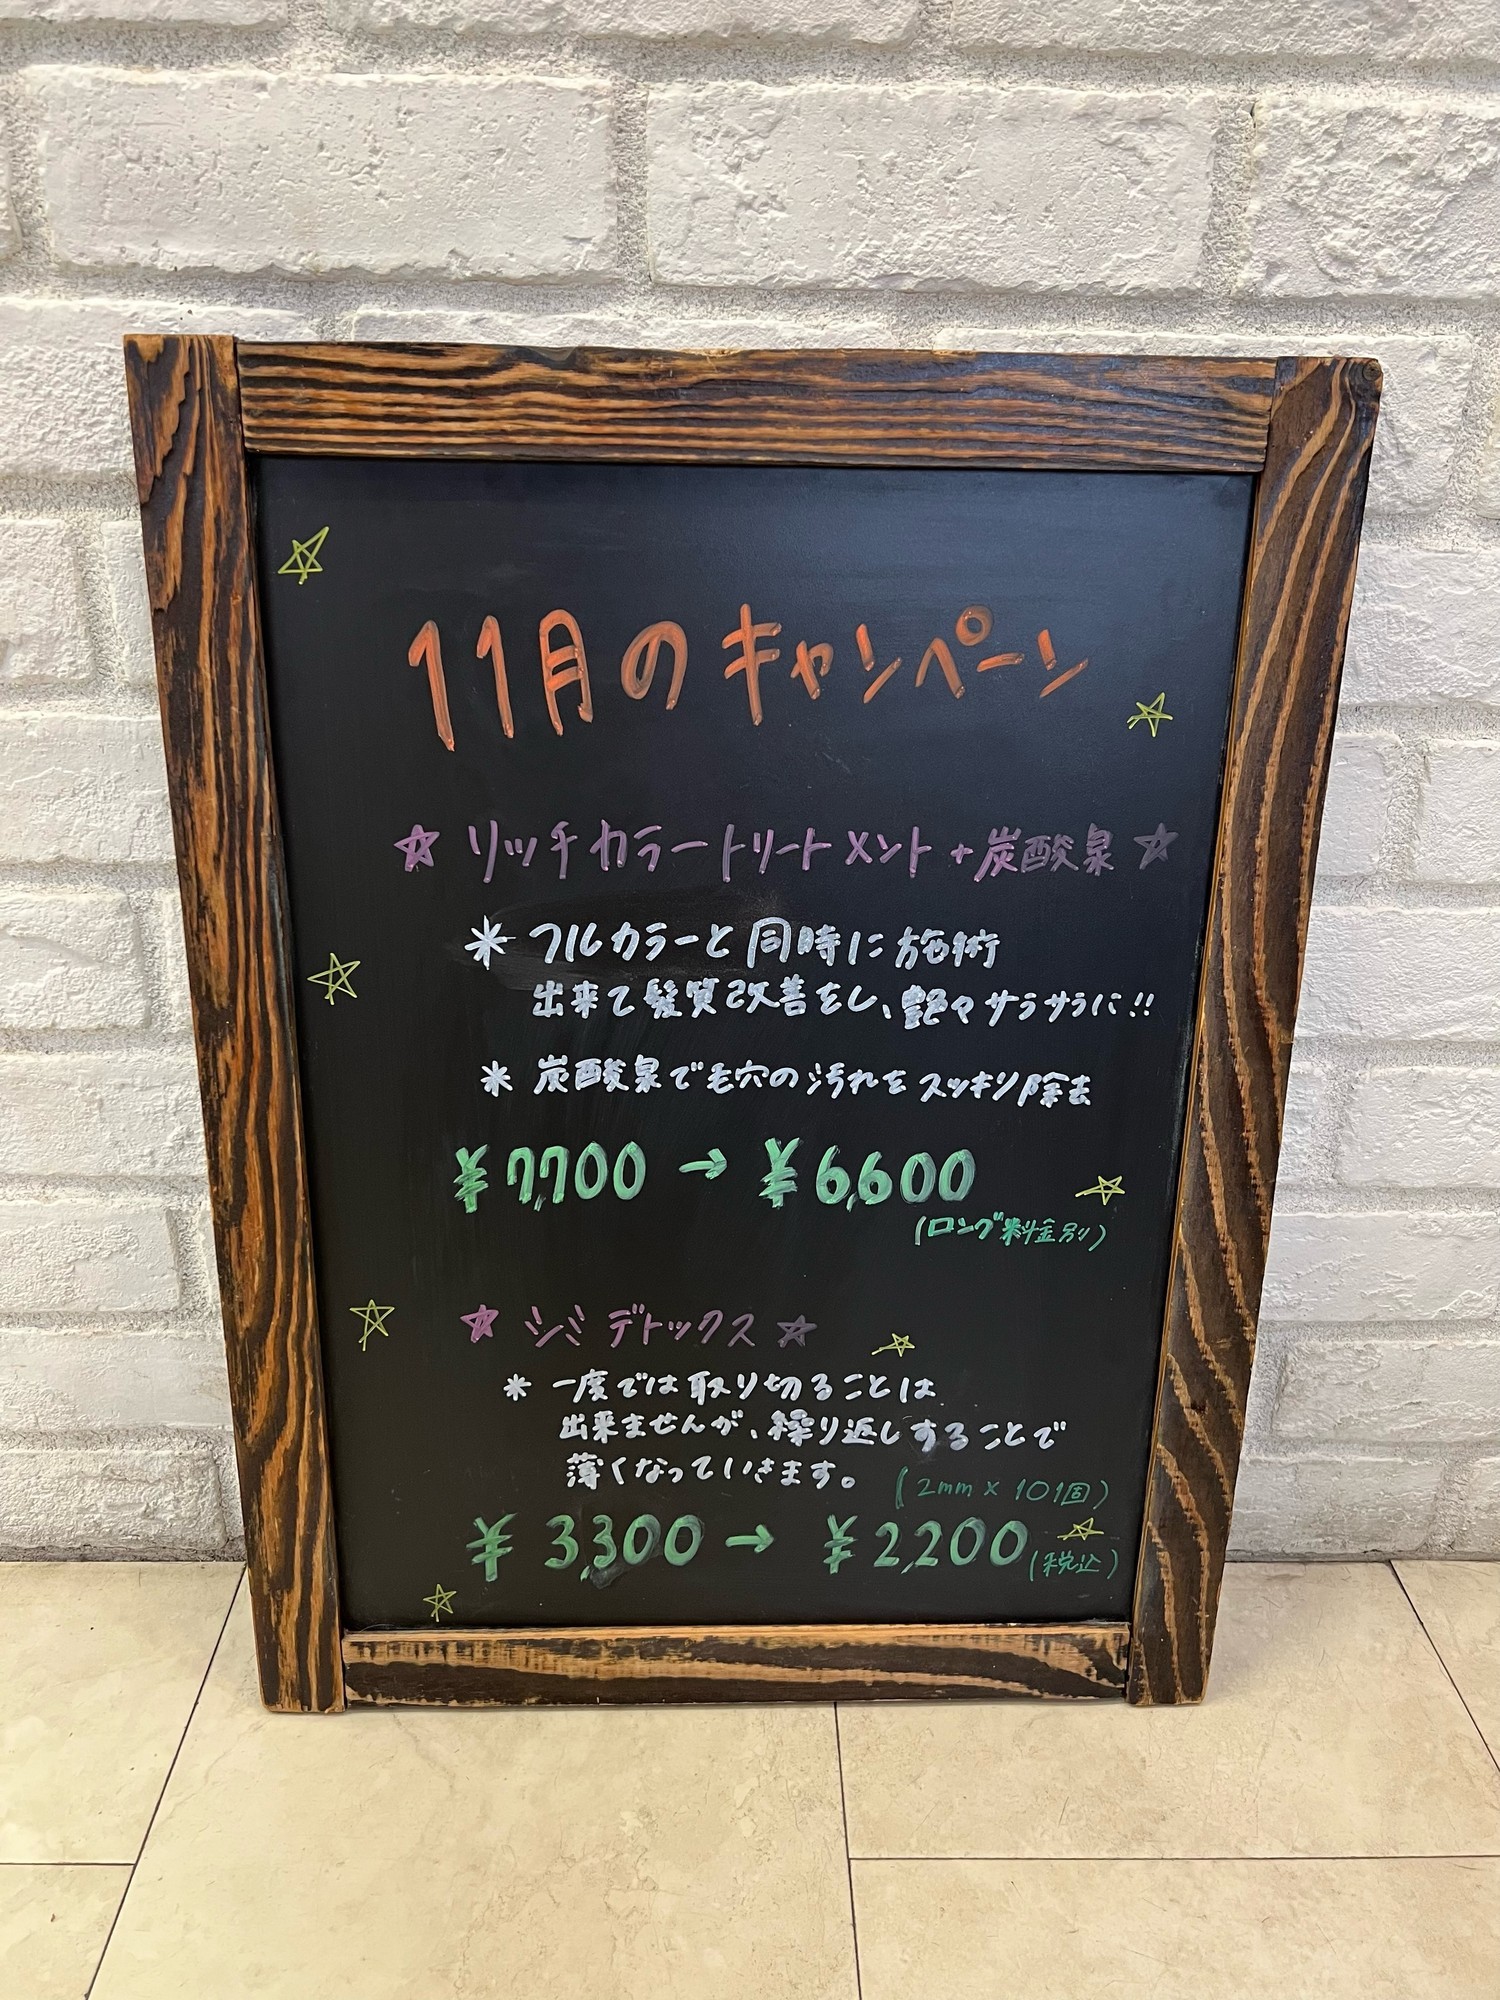 11月のキャンペーン
☆ リッチカラートリートメント+炭酸泉 ☆
* フルカラーと同時に施術
出来て髪質改善をし、艶々サラサラに!!
* 炭酸泉で毛穴の汚れをスッキリ除去
¥7,700 → ¥6,600
(ロング料金別)
☆ シミデトックス ☆
* 一度では取り切ることは
出来ませんが、繰り返しすることで
薄くなっていきます。
(2mm×10個)
¥3,300 → ¥2,200 (税込)